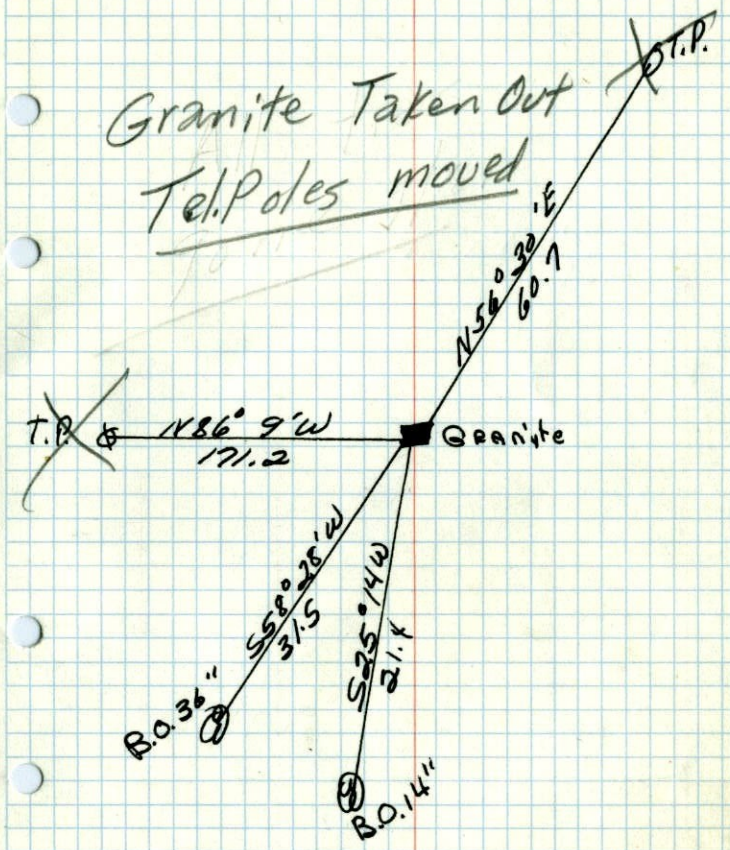 T.P.
Granite Taken Out
Tel.Poles moved
N56° 30'E
60.7
T.P.
N86° 9'W
171.2
Granite
S58° 28'W
31.5
S25° 14'W
21.4
B.O. 36"
B.O. 14"